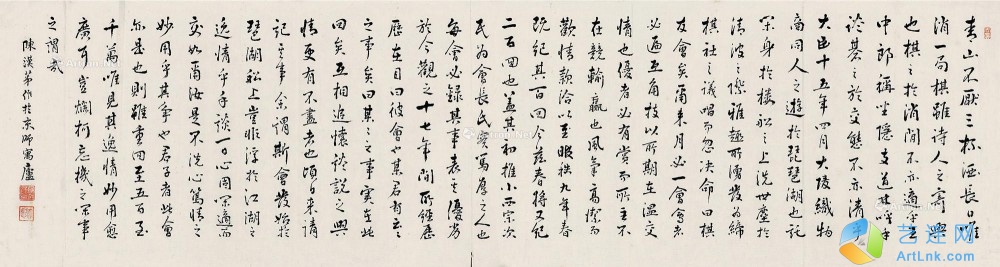 青山不厭三杯酒長日唯
消一局棋雖詩人之寄興
也棋之於消閒不亦適乎王
中郎稱坐隱支道林呼手
談棋之於交態不亦清乎
大正十五年四月大阪織物
商同人之遊於琵琶湖也託
閑身於樓船之上洗世塵於
清波之際雅趣所湧發為締
棋社之議唱而忽決命曰棋
友會矣爾来月必一會會者
必遍互角技以所期在溫交
情也優者必有賞而所主不
在競輸贏也風氣高潔而
歡情款洽以至昭和九年春
既紀其百回今茲春將又紀
二百回也蓋其初推小西宗次
氏為會長氏實篤厚之人也
每會必録其事表其優劣
於今觀之十七年間所經歷
歷在目曰彼會也某君有云云
之事矣曰某某之事實在此
回矣互相追懷談說之興
情更有不盡者也頃日来請
記其事余謂斯會發始於
琵琶湖船上豈非浮於江湖之
逸情乎手談一日心閑適而
交如爾汝是不洗心篤情之
妙用乎其爭也君子者此會
尓是也則雖重回至五百至
千萬唯見其逸情妙用愈
廣耳豈爛柯忘機之閑事
之謂哉
陳漢第作於京師寓廬
艺迷网
ArtLnk.com